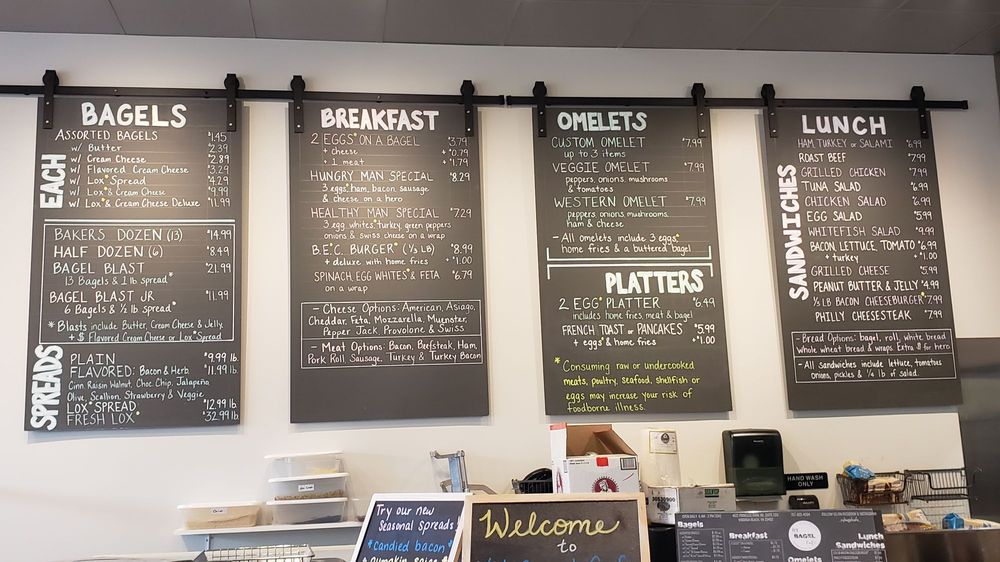 BAGELS
EACH
ASSORTED BAGELS $1.45
w/ Butter $2.39
w/ Cream Cheese $2.89
w/ Flavored Cream Cheese $3.29
w/ Lox* Spread $4.29
w/ Lox* & Cream Cheese $9.99
w/ Lox* & Cream Cheese Deluxe $11.99
BAKERS DOZEN (13) $14.99
HALF DOZEN (6) $8.49
BAGEL BLAST $21.99
13 Bagels & 1 lb spread*
BAGEL BLAST JR $11.99
6 Bagels & ½ lb spread*
* Blasts include Butter, Cream Cheese & Jelly
+ $ Flavored Cream Cheese or Lox* Spread
SPREADS
PLAIN $9.99 lb.
FLAVORED: Bacon & Herb, $11.99 lb.
Cinn. Raisin Walnut, Choc Chip, Jalapeña
Olive, Scallion, Strawberry & Veggie
LOX* SPREAD $12.99 lb.
FRESH LOX* $32.99 lb.
BREAKFAST
2 EGGS* ON A BAGEL $3.79
+ cheese + $0.79
+ 1 meat + $1.79
HUNGRY MAN SPECIAL $8.29
3 eggs*, ham, bacon, sausage
& cheese on a hero
HEALTHY MAN SPECIAL $7.29
3 egg whites*, turkey, green peppers
onions & swiss cheese on a wrap
B.E.C. BURGER* (⅓ LB) $8.99
+ deluxe with home fries + $1.00
SPINACH EGG WHITES* & FETA $6.79
on a wrap
- Cheese Options: American, Asiago,
Cheddar, Feta, Mozzarella, Muenster,
Pepper Jack, Provolone & Swiss
- Meat Options: Bacon, Beefsteak, Ham,
Pork Roll, Sausage, Turkey & Turkey Bacon
OMELETS
CUSTOM OMELET $7.99
up to 3 items
VEGGIE OMELET $7.99
peppers, onions, mushrooms
& tomatoes
WESTERN OMELET $7.99
peppers, onions, mushrooms,
ham & cheese
- All omelets include 3 eggs*,
home fries & a buttered bagel
PLATTERS
2 EGG* PLATTER $6.49
includes home fries, meat & bagel
FRENCH TOAST or PANCAKES $5.99
+ eggs* & home fries + $1.00
* Consuming raw or undercooked
meats, poultry, seafood, shellfish or
eggs may increase your risk of
foodborne illness.
LUNCH
SANDWICHES
HAM, TURKEY or SALAMI $6.99
ROAST BEEF $7.99
GRILLED CHICKEN $7.99
TUNA SALAD $6.99
CHICKEN SALAD $6.99
EGG SALAD $5.99
WHITEFISH SALAD $9.99
BACON, LETTUCE, TOMATO $6.99
+ turkey + $1.00
GRILLED CHEESE $5.99
PEANUT BUTTER & JELLY $4.99
⅓ LB BACON CHEESEBURGER* $7.99
PHILLY CHEESESTEAK $7.99
- Bread Options: bagel, roll, white bread
whole wheat bread & wraps. Extra $ for hero
- All sandwiches include lettuce, tomatoes
onions, pickles & ¼ lb of salad.
HAND WASH
ONLY
Try our new
Seasonal Spreads!
*candied bacon*
Welcome
to
Bagels
Breakfast
BAGEL
Omelets
Lunch
Sandwiches